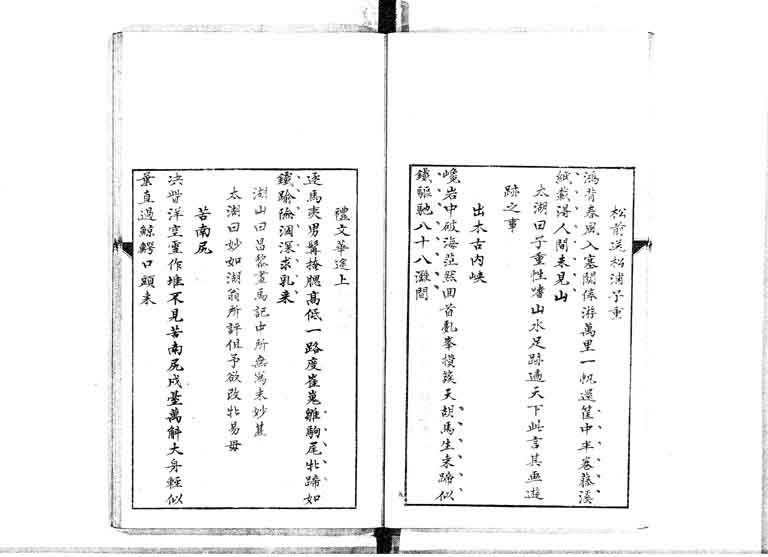 松前送松浦子重
鴻背春風入塞關俸游萬里一帆還筐中半卷藤溪
紙載得人間未見山
太湖曰子重性嗜山水足跡遍天下此言其再遊
跡之事
出木古內峽
巉岩中破海茫然回首亂峯攢簇天胡馬生来蹄似
鐵驅馳八十八灘間
禮文華途上
逐馬夷男髯掩腮高低一路度崔嵬雛駒尾牝蹄如
鐵踰險涸深求乳来
湖山曰昌黎畫馬記中所無寫来妙甚
太湖曰妙如湖翁所評但予欲改牝易母
苦南尻
決眥洋空壹作堆不見苦南尻戍臺萬斛大身輕似
葉直過鯨鰐口頭来